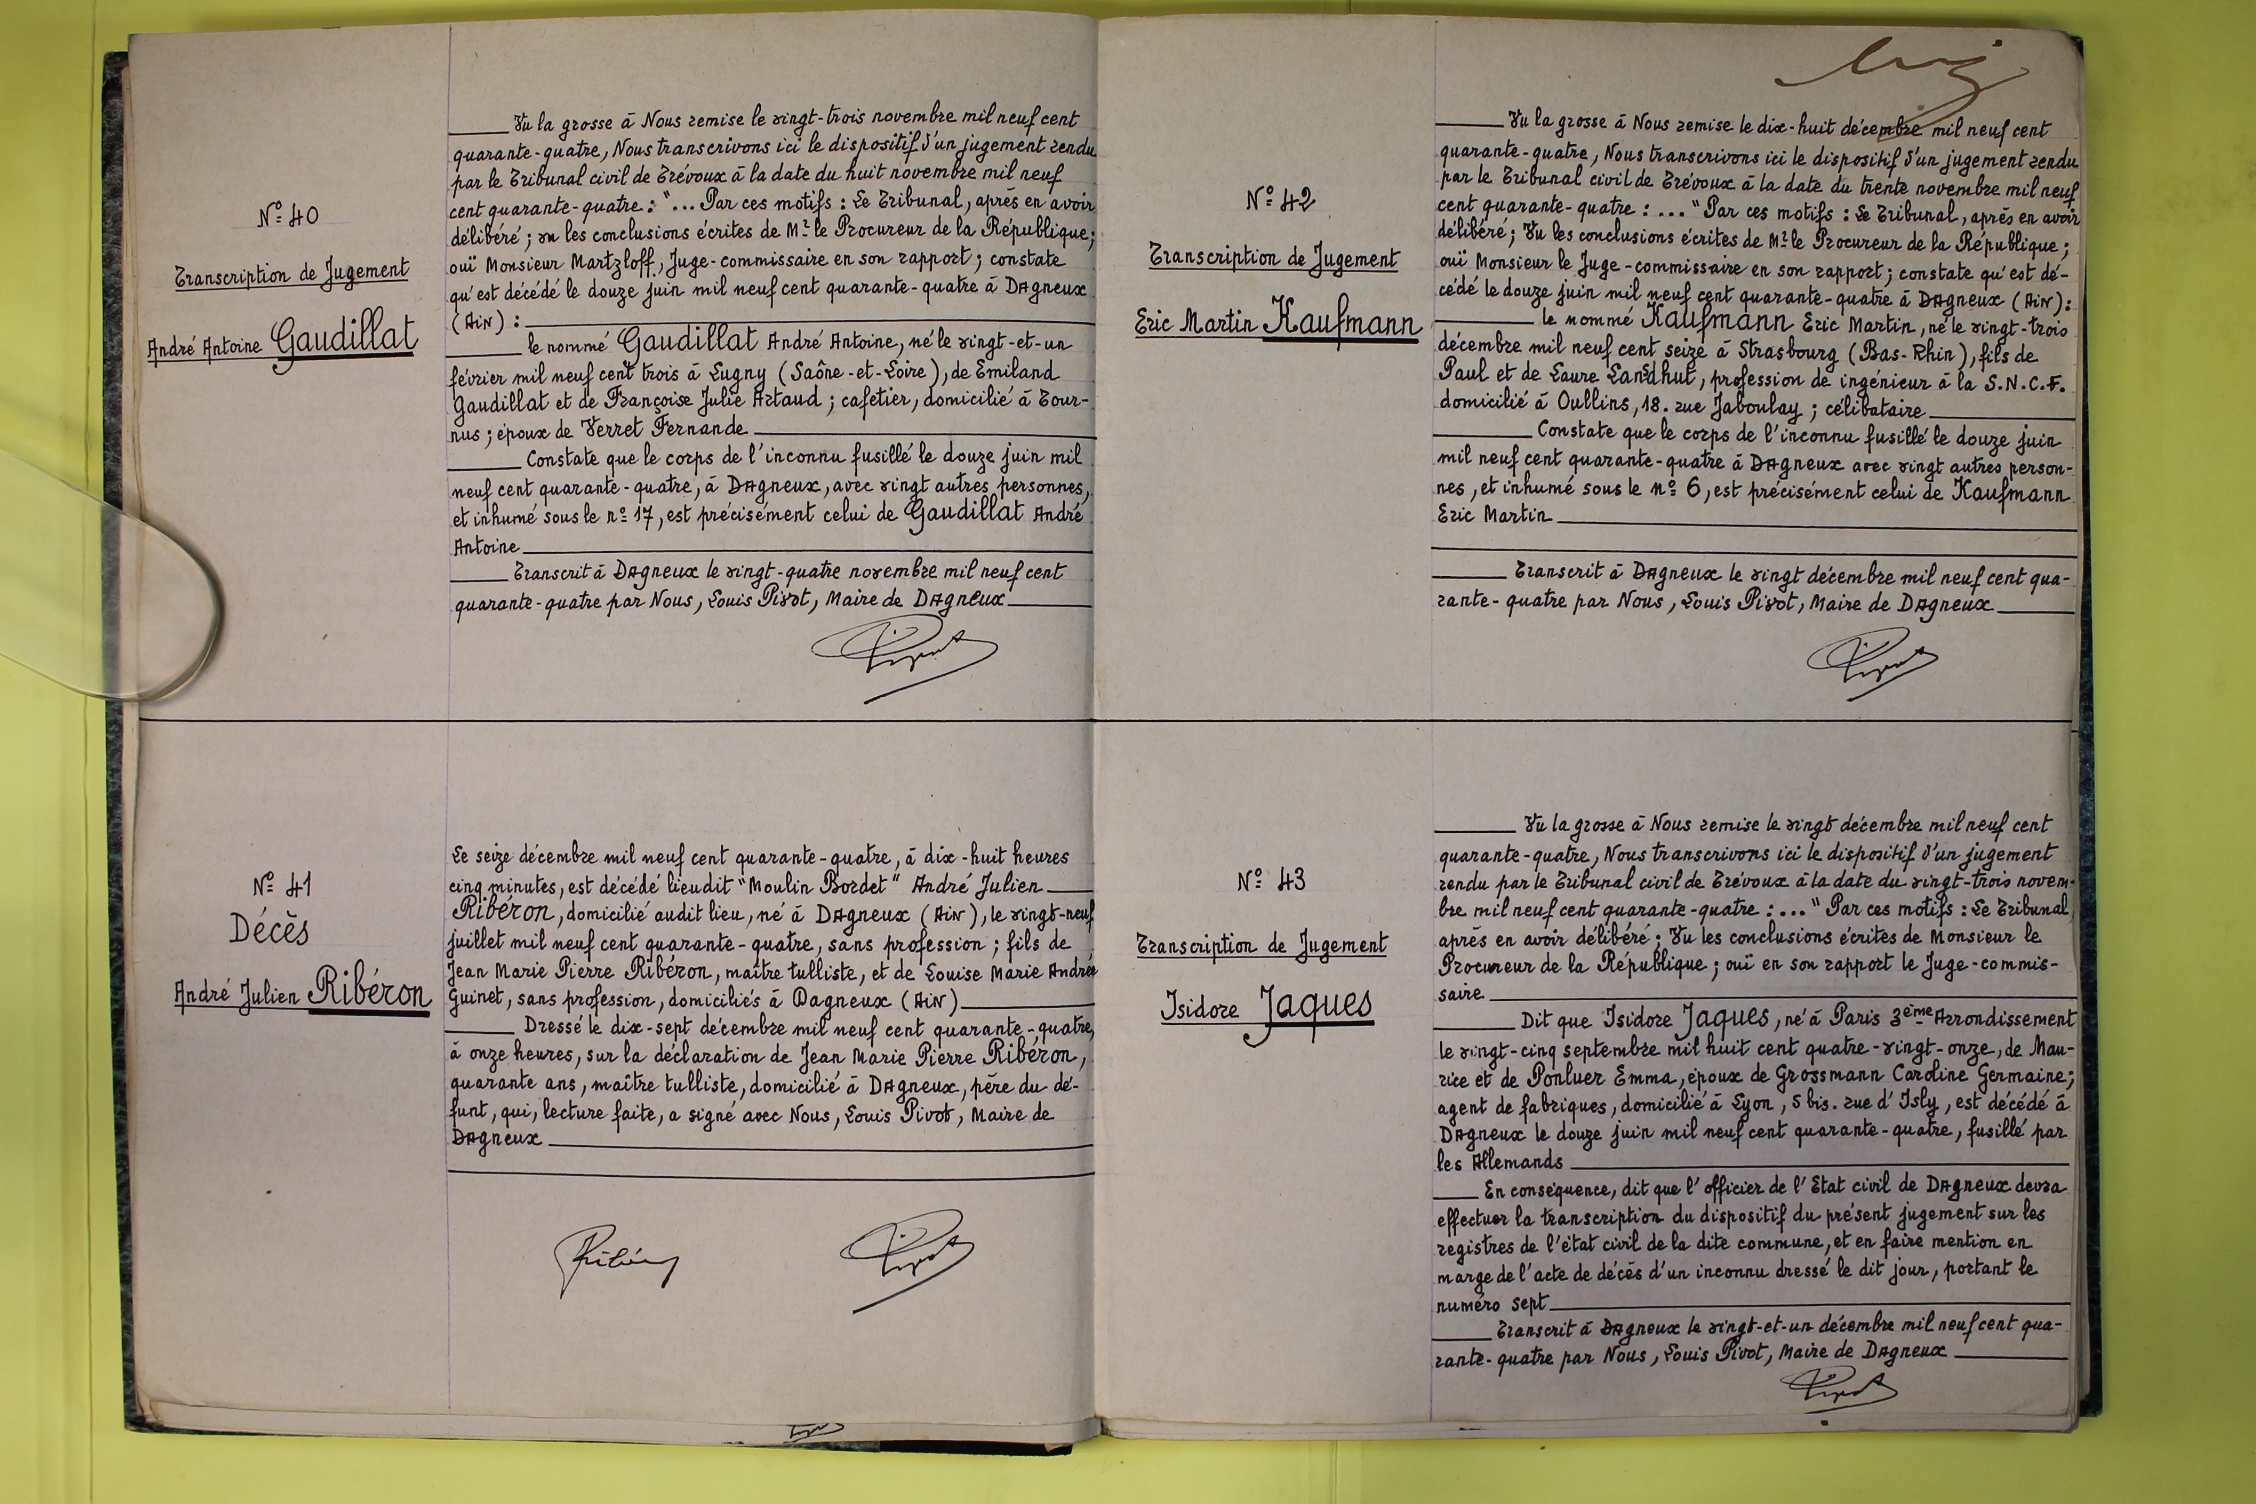 N° 40
Transcription de Jugement
André Antoine Gaudillat
Vu la grosse à Nous remise le vingt-trois novembre mil neuf cent
quarante-quatre, Nous transcrivons ici le dispositif d'un jugement rendu
par le Tribunal civil de Trévoux à la date du huit novembre mil neuf
cent quarante-quatre : "... Par ces motifs : Le Tribunal, après en avoir
délibéré ; vu les conclusions écrites de Mr le Procureur de la République ;
ouï Monsieur Martzloff, Juge-commissaire en son rapport ; constate
qu'est décédé le douze juin mil neuf cent quarante-quatre à Dagneux
(Ain) :
le nommé Gaudillat André Antoine, né le vingt-et-un
février mil neuf cent trois à Lugny (Saône-et-Loire), de Emiland
Gaudillat et de Françoise Julie Artaud ; cafetier, domicilié à Tour-
nus ; époux de Verret Fernande
Constate que le corps de l'inconnu fusillé le douze juin mil
neuf cent quarante-quatre, à Dagneux, avec vingt autres personnes,
et inhumé sous le n° 17, est précisément celui de Gaudillat André
Antoine
Transcrit à Dagneux le vingt-quatre novembre mil neuf cent
quarante-quatre par Nous, Louis Pivot, Maire de Dagneux
Pivot
N° 41
Décès
André Julien Ribéron
Le seize décembre mil neuf cent quarante-quatre, à dix-huit heures
cinq minutes, est décédé lieudit "Moulin Bordet" André Julien
Ribéron, domicilié audit lieu, né à Dagneux (Ain), le vingt-neuf
juillet mil neuf cent quarante-quatre, sans profession ; fils de
Jean Marie Pierre Ribéron, maître tulliste, et de Louise Marie Andrée
Guinet, sans profession, domiciliés à Dagneux (Ain)
Dressé le dix-sept décembre mil neuf cent quarante-quatre,
à onze heures, sur la déclaration de Jean Marie Pierre Ribéron,
quarante ans, maître tulliste, domicilié à Dagneux, père du dé-
funt, qui, lecture faite, a signé avec Nous, Louis Pivot, Maire de
Dagneux
Ribéron Pivot
N° 42
Transcription de Jugement
Eric Martin Kaufmann
Vu la grosse à Nous remise le dix-huit décembre mil neuf cent
quarante-quatre, Nous transcrivons ici le dispositif d'un jugement rendu
par le Tribunal civil de Trévoux à la date du trente novembre mil neuf
cent quarante-quatre : ... "Par ces motifs : Le Tribunal, après en avoir
délibéré ; Vu les conclusions écrites de Mr le Procureur de la République ;
ouï Monsieur le Juge-commissaire en son rapport ; constate qu'est dé-
cédé le douze juin mil neuf cent quarante-quatre à Dagneux (Ain) :
le nommé Kaufmann Eric Martin, né le vingt-trois
décembre mil neuf cent seize à Strasbourg (Bas-Rhin), fils de
Paul et de Laure Landhut, profession de ingénieur à la S.N.C.F.
domicilié à Oullins, 18. rue Jaboulay ; célibataire
Constate que le corps de l'inconnu fusillé le douze juin
mil neuf cent quarante-quatre à Dagneux avec vingt autres person-
nes, et inhumé sous le n° 6, est précisément celui de Kaufmann
Eric Martin
Transcrit à Dagneux le vingt décembre mil neuf cent qua-
rante-quatre par Nous, Louis Pivot, Maire de Dagneux
Pivot
N° 43
Transcription de Jugement
Isidore Jaques
Vu la grosse à Nous remise le vingt décembre mil neuf cent
quarante-quatre, Nous transcrivons ici le dispositif d'un jugement
rendu par le Tribunal civil de Trévoux à la date du vingt-trois novem-
bre mil neuf cent quarante-quatre : ... "Par ces motifs : Le Tribunal
après en avoir délibéré ; Vu les conclusions écrites de Monsieur le
Procureur de la République ; ouï en son rapport le Juge-commis-
saire
Dit que Isidore Jaques, né à Paris 3ème Arrondissement
le vingt-cinq septembre mil huit cent quatre-vingt-onze, de Mau-
rice et de Ponluer Emma, époux de Grossmann Caroline Germaine ;
agent de fabriques, domicilié à Lyon, 5 bis. rue d'Isly, est décédé à
Dagneux le douze juin mil neuf cent quarante-quatre, fusillé par
les Allemands
En conséquence, dit que l'officier de l'Etat civil de Dagneux devra
effectuer la transcription du dispositif du présent jugement sur les
registres de l'état civil de la dite commune, et en faire mention en
marge de l'acte de décès d'un inconnu dressé le dit jour, portant le
numéro sept
Transcrit à Dagneux le vingt-et-un décembre mil neuf cent qua-
rante-quatre par Nous, Louis Pivot, Maire de Dagneux
Pivot